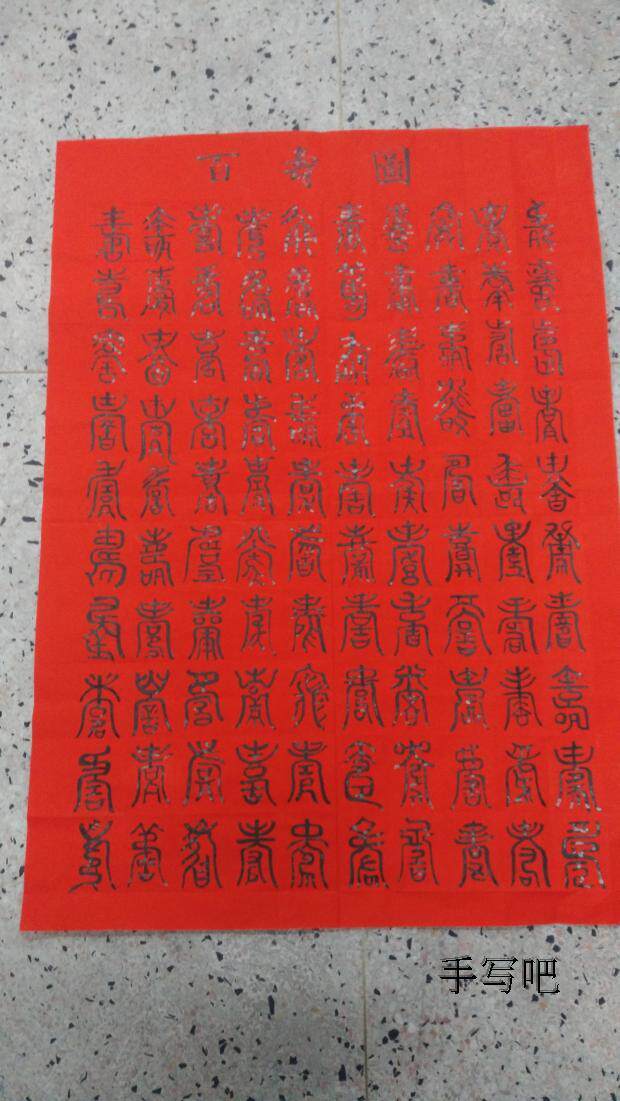 百壽圖
壽壽壽壽壽壽壽壽壽壽
壽壽壽壽壽壽壽壽壽壽
壽壽壽壽壽壽壽壽壽壽
壽壽壽壽壽壽壽壽壽壽
壽壽壽壽壽壽壽壽壽壽
壽壽壽壽壽壽壽壽壽壽
壽壽壽壽壽壽壽壽壽壽
壽壽壽壽壽壽壽壽壽壽
壽壽壽壽壽壽壽壽壽壽
壽壽壽壽壽壽壽壽壽壽
手写吧